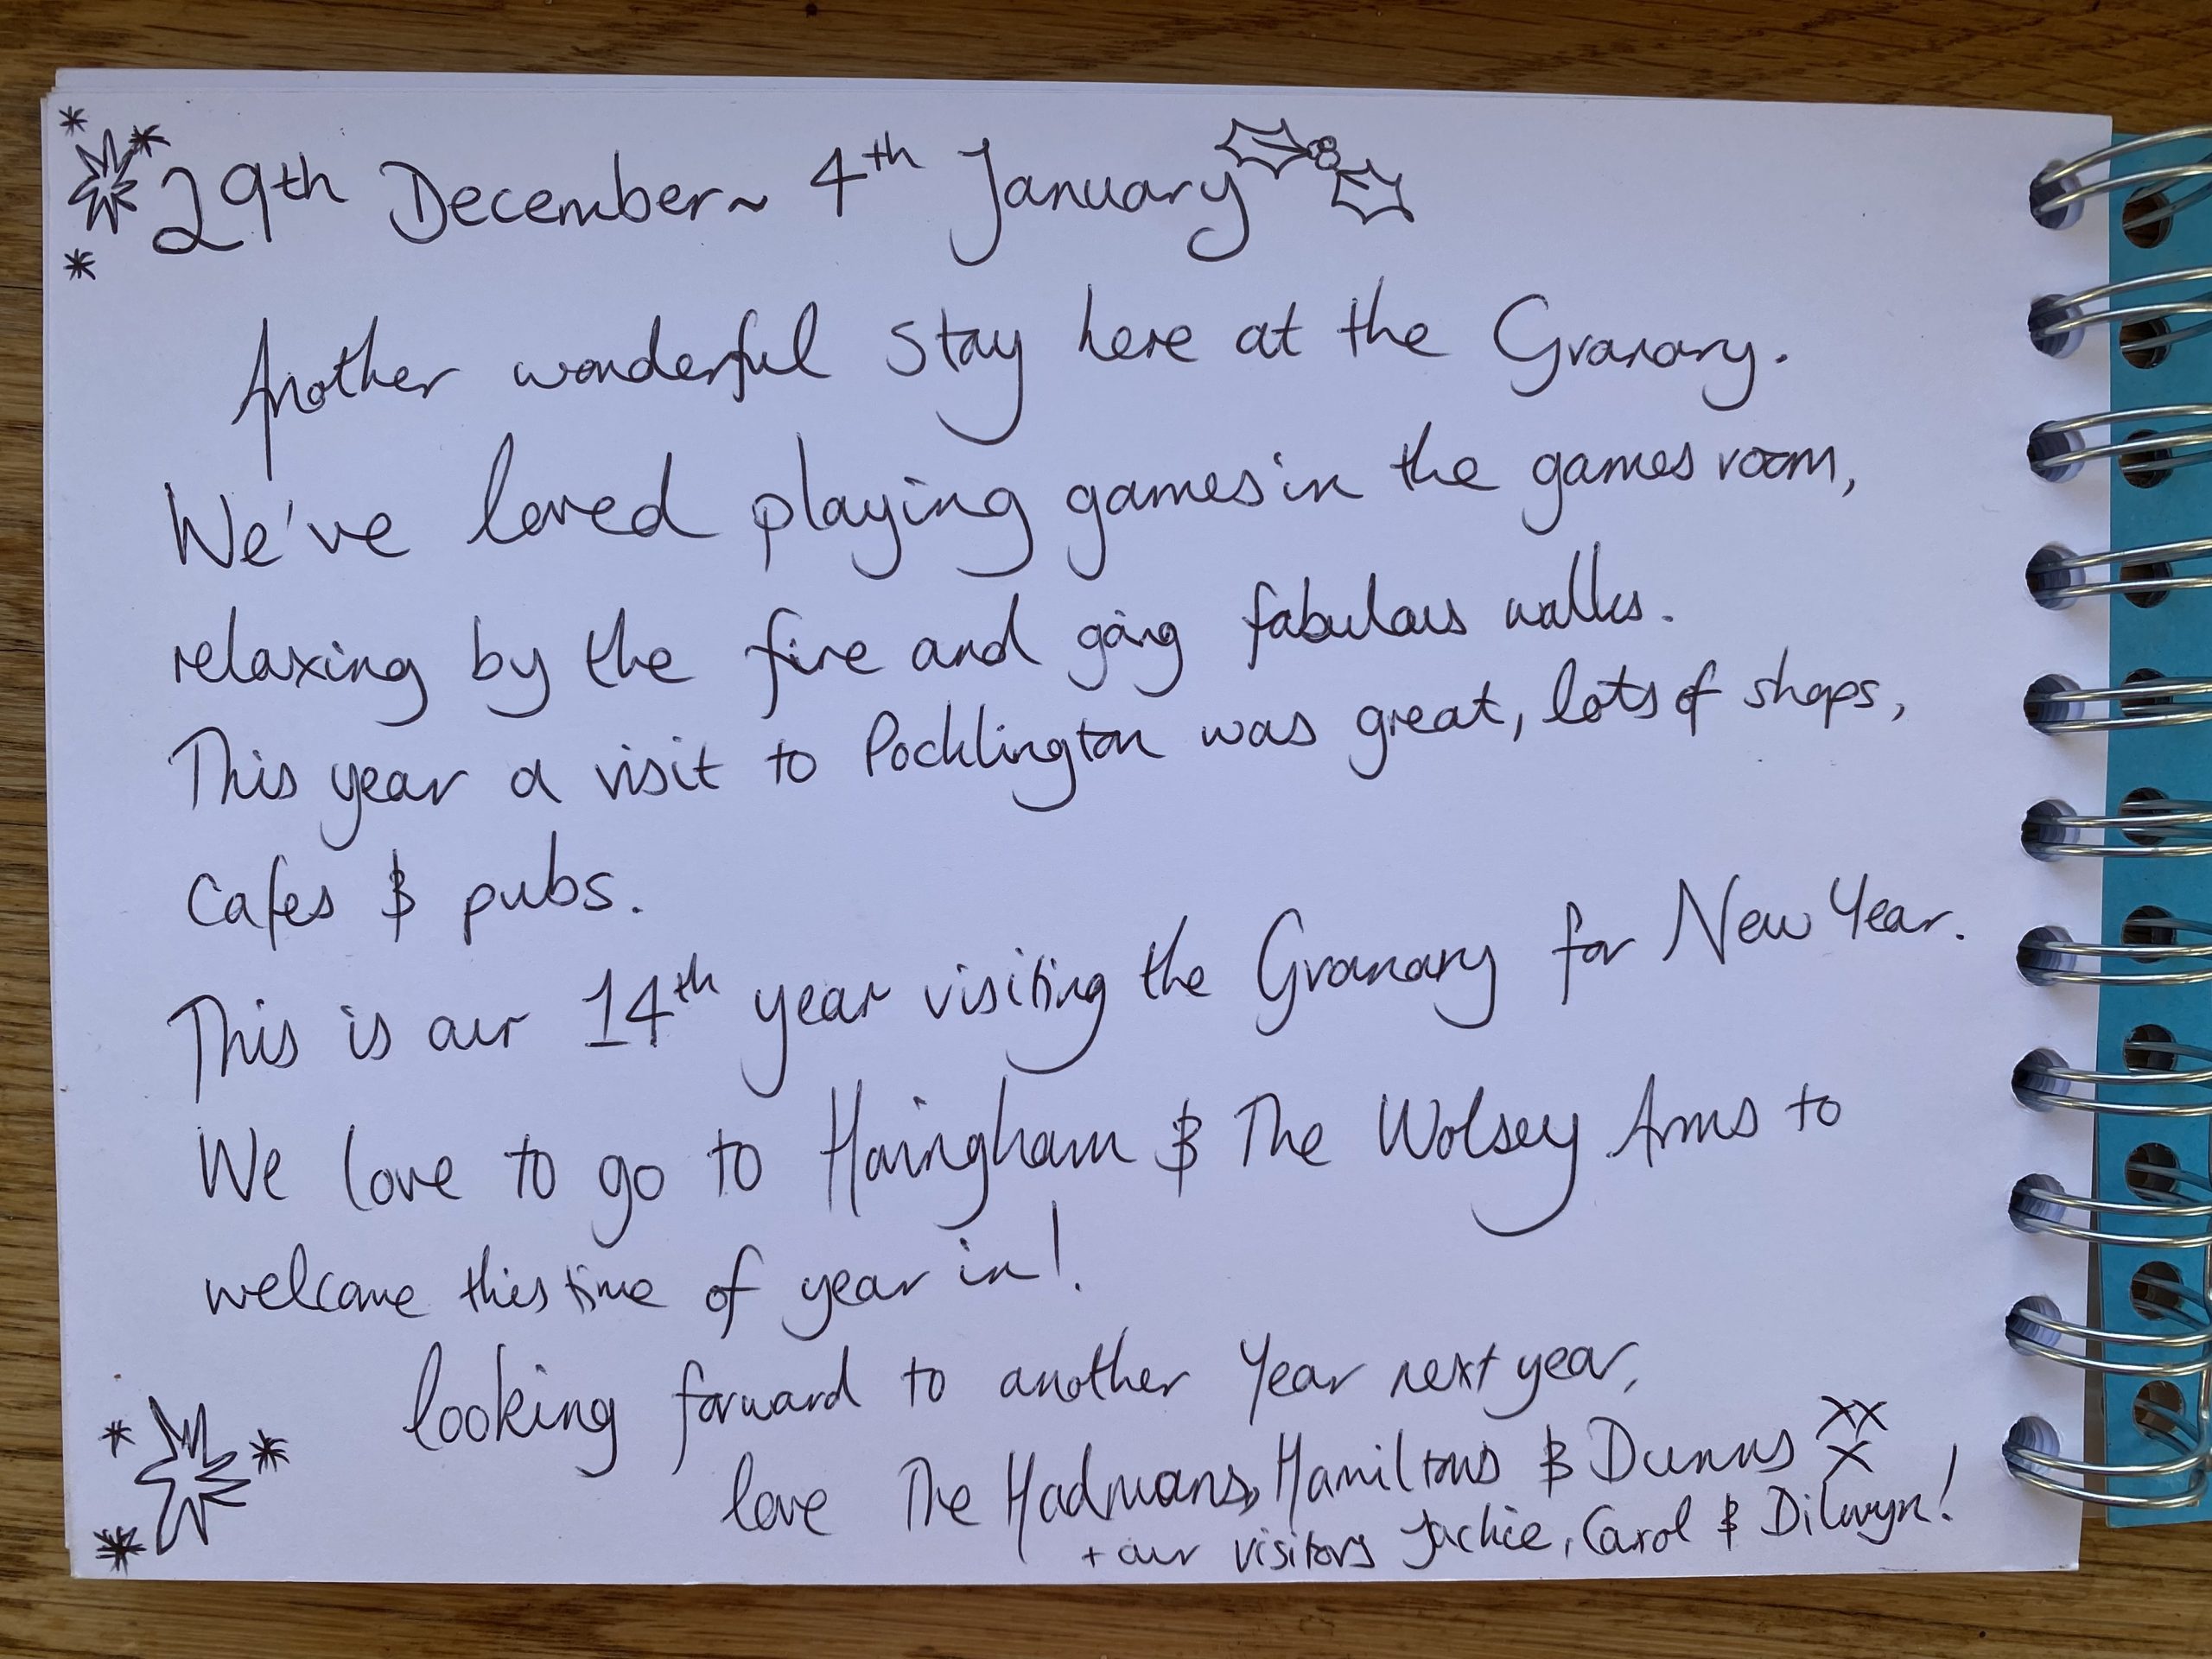 29th December ~ 4th January
Another wonderful stay here at the Granary.
We've loved playing games in the games room,
relaxing by the fire and going fabulous walks.
This year a visit to Pocklington was great, lots of shops,
cafes & pubs.
This is our 14th year visiting the Granary for New Year.
We love to go to Haringham & The Wolsey Arms to
welcome this time of year in!
looking forward to another Year next year,
love The Hadmans, Hamiltons & Dunns xx
x
+ our visitors Jackie, Carol & Dilwyn!